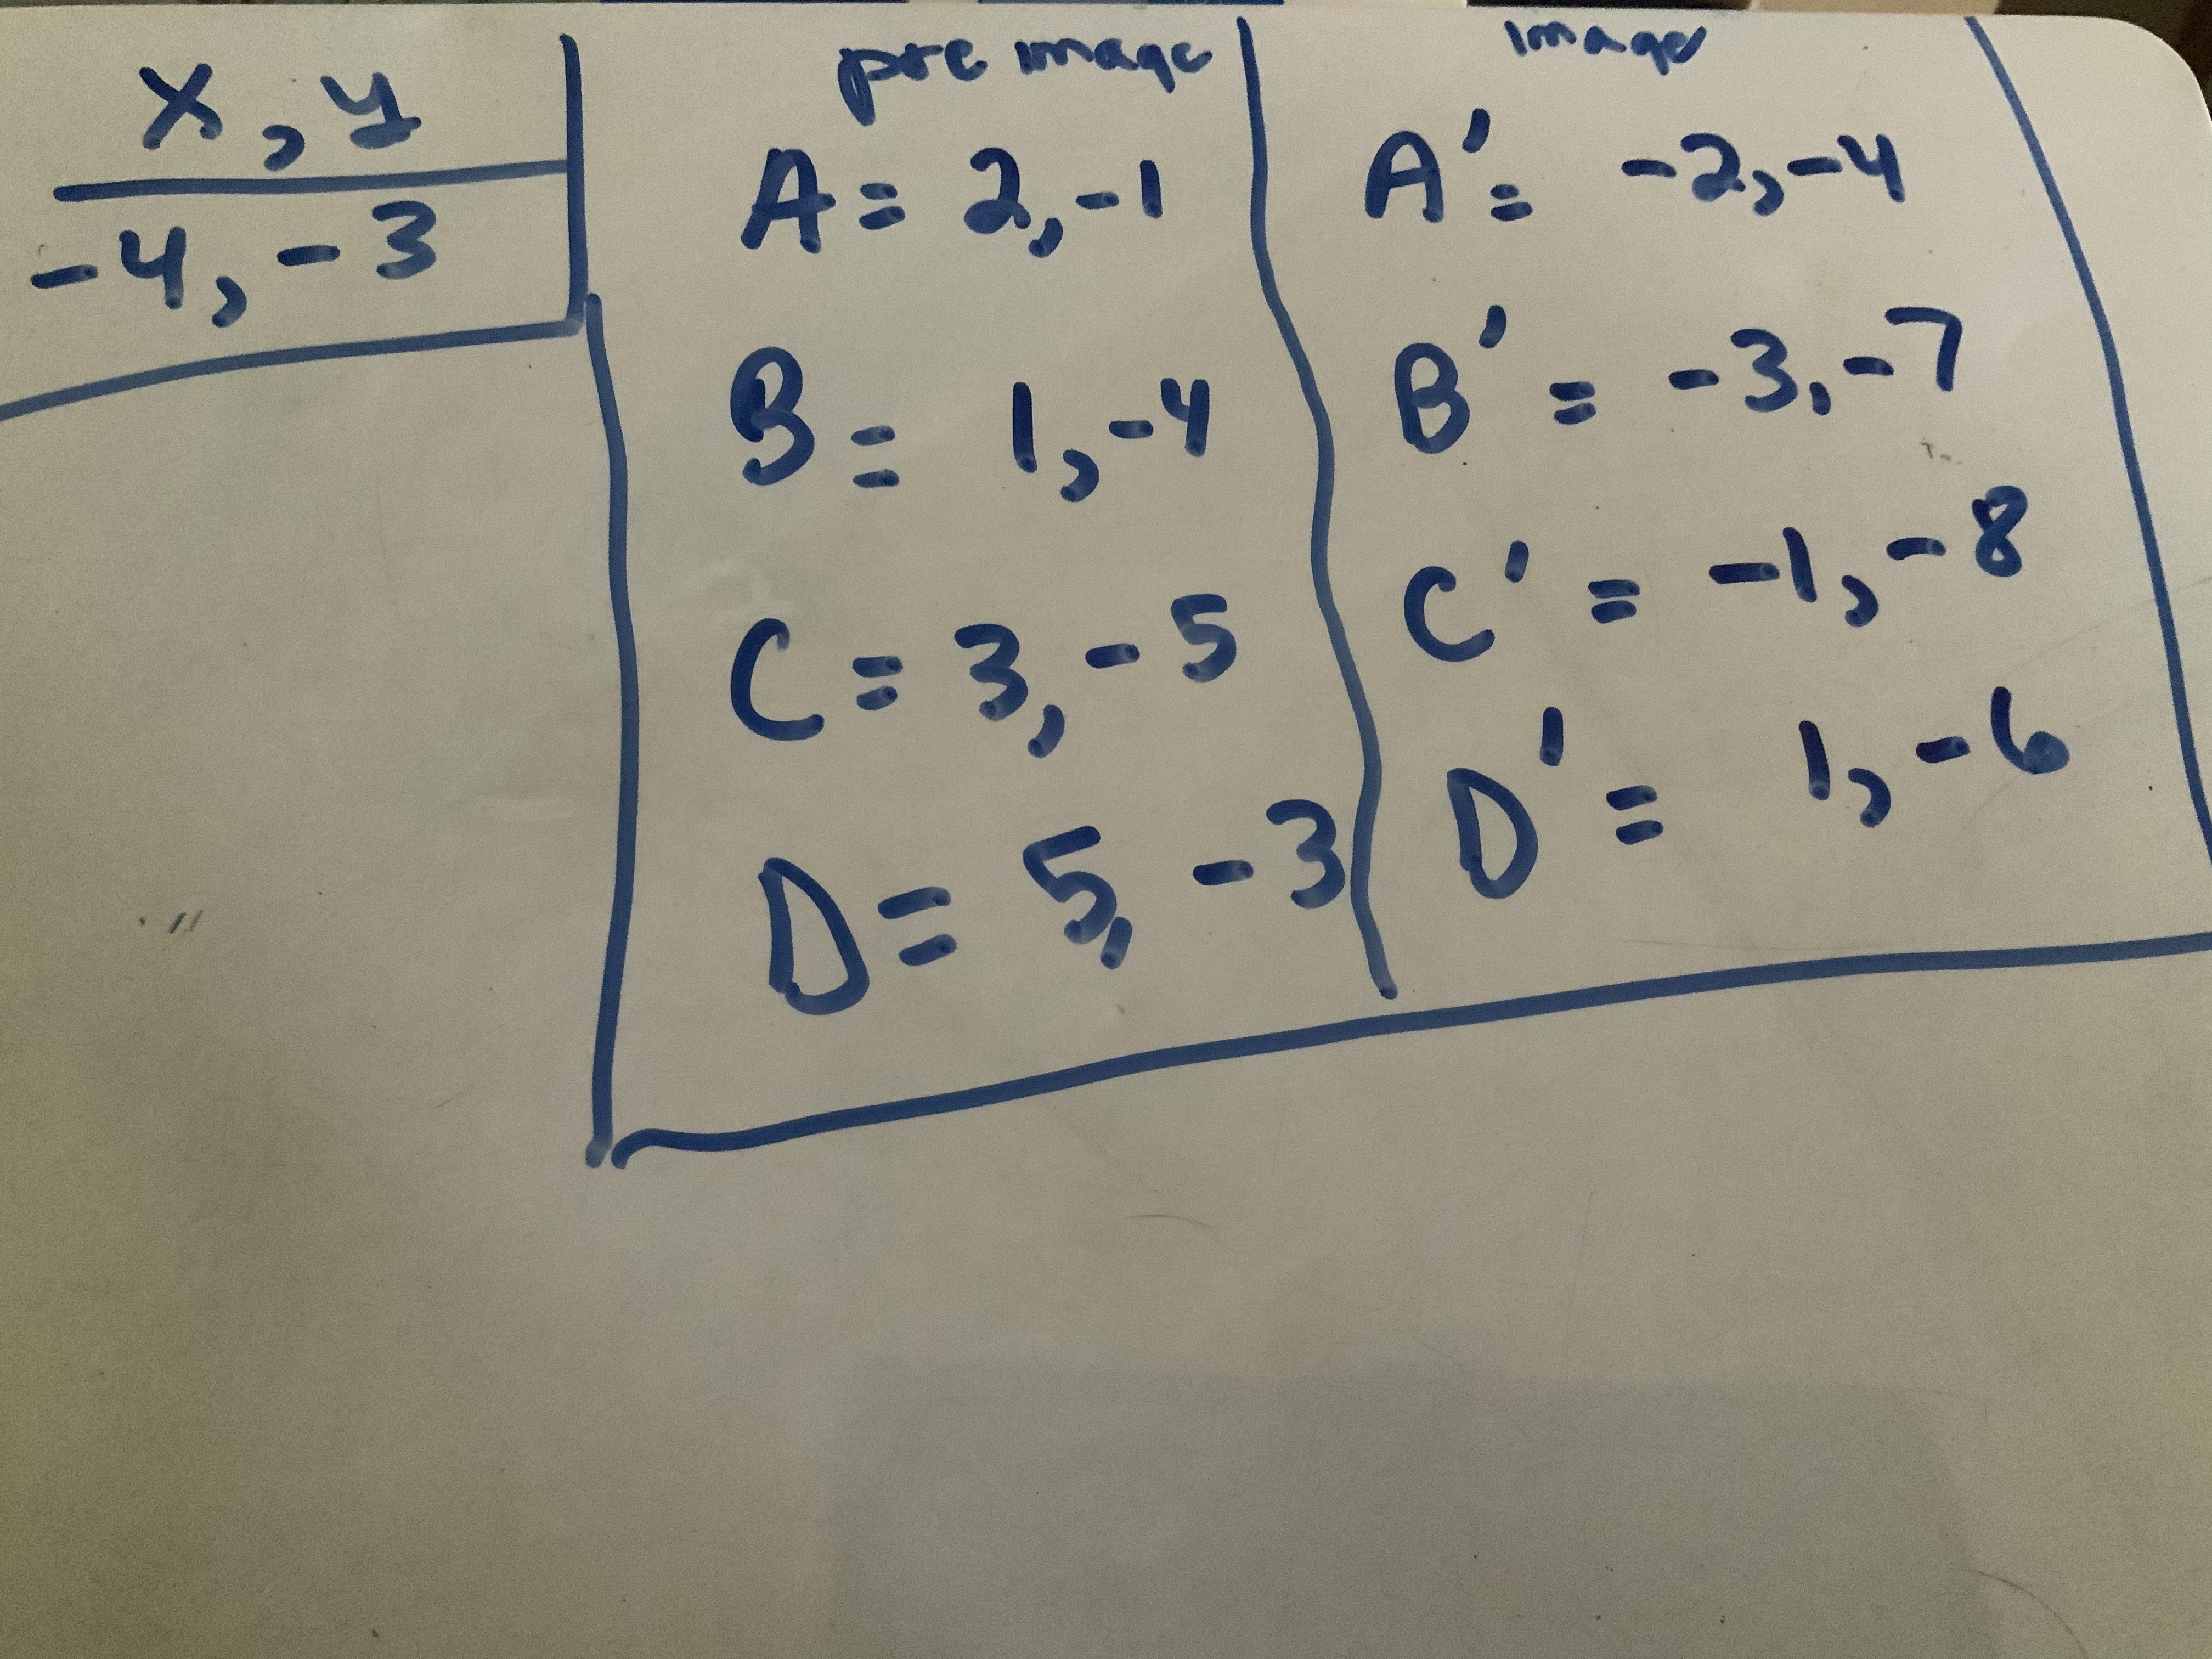 x, y
-4, -3
pre image
A = 2, -1
B = 1, -4
C = 3, -5
D = 5, -3
image
A' = -2, -4
B' = -3, -7
C' = -1, -8
D' = 1, -6